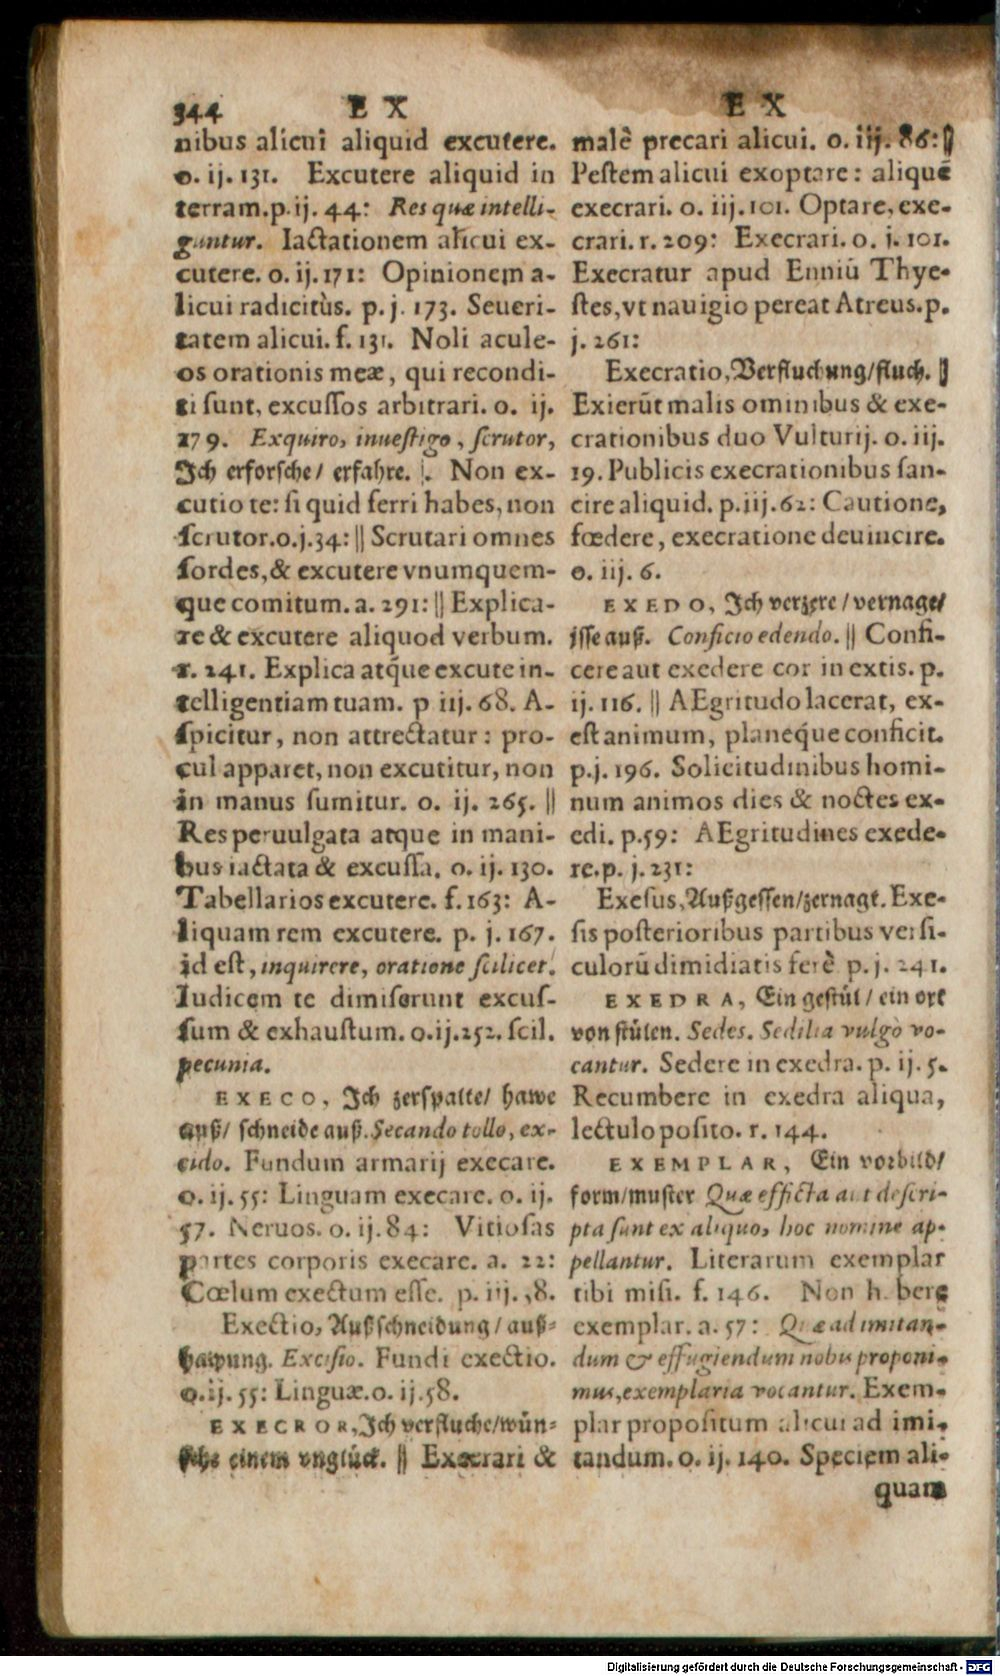 344 E X
nibus alicui aliquid excutere.
o. ij. 131. Excutere aliquid in
terram. p. ij. 44: Res quæ intelli-
guntur. Iactationem alicui ex-
cutere. o. ij. 171: Opinionem a-
licui radicitùs. p. j. 173. Seueri-
tatem alicui. f. 131. Noli acule-
os orationis meæ, qui recondi-
ti sunt, excussos arbitrari. o. ij.
279. Exquiro, inuestigo, scrutor,
Ich erforsche/ erfahre. |. Non ex-
cutio te: si quid ferri habes, non
scrutor. o. j. 34: || Scrutari omnes
sordes, & excutere vnumquem-
que comitum. a. 291: || Explica-
re & excutere aliquod verbum.
r. 241. Explica atq́ue excute in-
telligentiam tuam. p iij. 68. A-
spicitur, non attrectatur: pro-
cul apparet, non excutitur, non
in manus sumitur. o. ij. 265. ||
Res peruulgata atque in mani-
bus iactata & excussa. o. ij. 130.
Tabellarios excutere. f. 163: A-
liquam rem excutere. p. j. 167.
id est, inquirere, oratione scilicet.
Iudicem te dimiserunt excus-
sum & exhaustum. o. ij. 252. scil.
pecunia.
EXECO, Ich zerspalte/ hawe
auß/ schneide auß. Secando tollo, ex-
cido. Fundum armarij execare.
o. ij. 55: Linguam execare. o. ij.
57. Neruos. o. ij. 84: Vitiosas
partes corporis execare. a. 22:
Cœlum exectum esse. p. iij. 8.
Exectio, Außschneidung/ auß-
hawung. Excisio. Fundi exectio.
o. ij. 55: Linguæ. o. ij. 58.
EXECROR, Ich verfluche/ wün-
sche einem vnglück. || Execrari &
E X
malè precari alicui. o. iij. 86: ||
Pestem alicui exoptare: aliquẽ
execrari. o. iij. 101. Optare, exe-
crari. r. 209: Execrari. o. j. 101.
Execratur apud Enniũ Thye-
stes, vt nauigio pereat Atreus. p.
j. 261:
Execratio, Verfluchung/ fluch. ||
Exierũt malis ominibus & exe-
crationibus duo Vulturij. o. iij.
19. Publicis execrationibus san-
cire aliquid. p. iij. 62: Cautione,
fœdere, execratione deuincire.
o. iij. 6.
EXEDO, Ich verzere/ vernage/
isse auß. Conficio edendo. || Confi-
cere aut exedere cor in extis. p.
ij. 116. || AEgritudo lacerat, ex-
est animum, planeq́ue conficit.
p. j. 196. Solicitudinibus homi-
num animos dies & noctes ex-
edi. p. 59: AEgritudines exede-
re. p. j. 231:
Exesus, Außgessen/ zernagt. Exe-
sis posterioribus partibus versi-
culorũ dimidiatis ferè p. j. 241.
EXEDRA, Ein gestül/ ein ort
von stülen. Sedes. Sedilia vulgò vo-
cantur. Sedere in exedra. p. ij. 5.
Recumbere in exedra aliqua,
lectulo posito. r. 144.
EXEMPLAR, Ein vorbild/
form/ muster Quæ efficta aut descri-
pta sunt ex aliquo, hoc nomine ap-
pellantur. Literarum exemplar
tibi misi. f. 146. Non habere
exemplar. a. 57: Quæ ad imitan-
dum & effugiendum nobis proponi-
mus, exemplaria vocantur. Exem-
plar propositum alicui ad imi-
tandum. o. ij. 140. Speciem ali-
quam
Digitalisierung gefördert durch die Deutsche Forschungsgemeinschaft - DFG